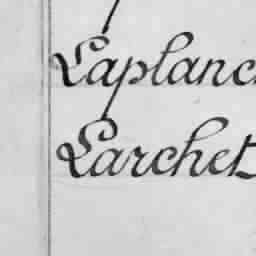 Laplanc
Larchet